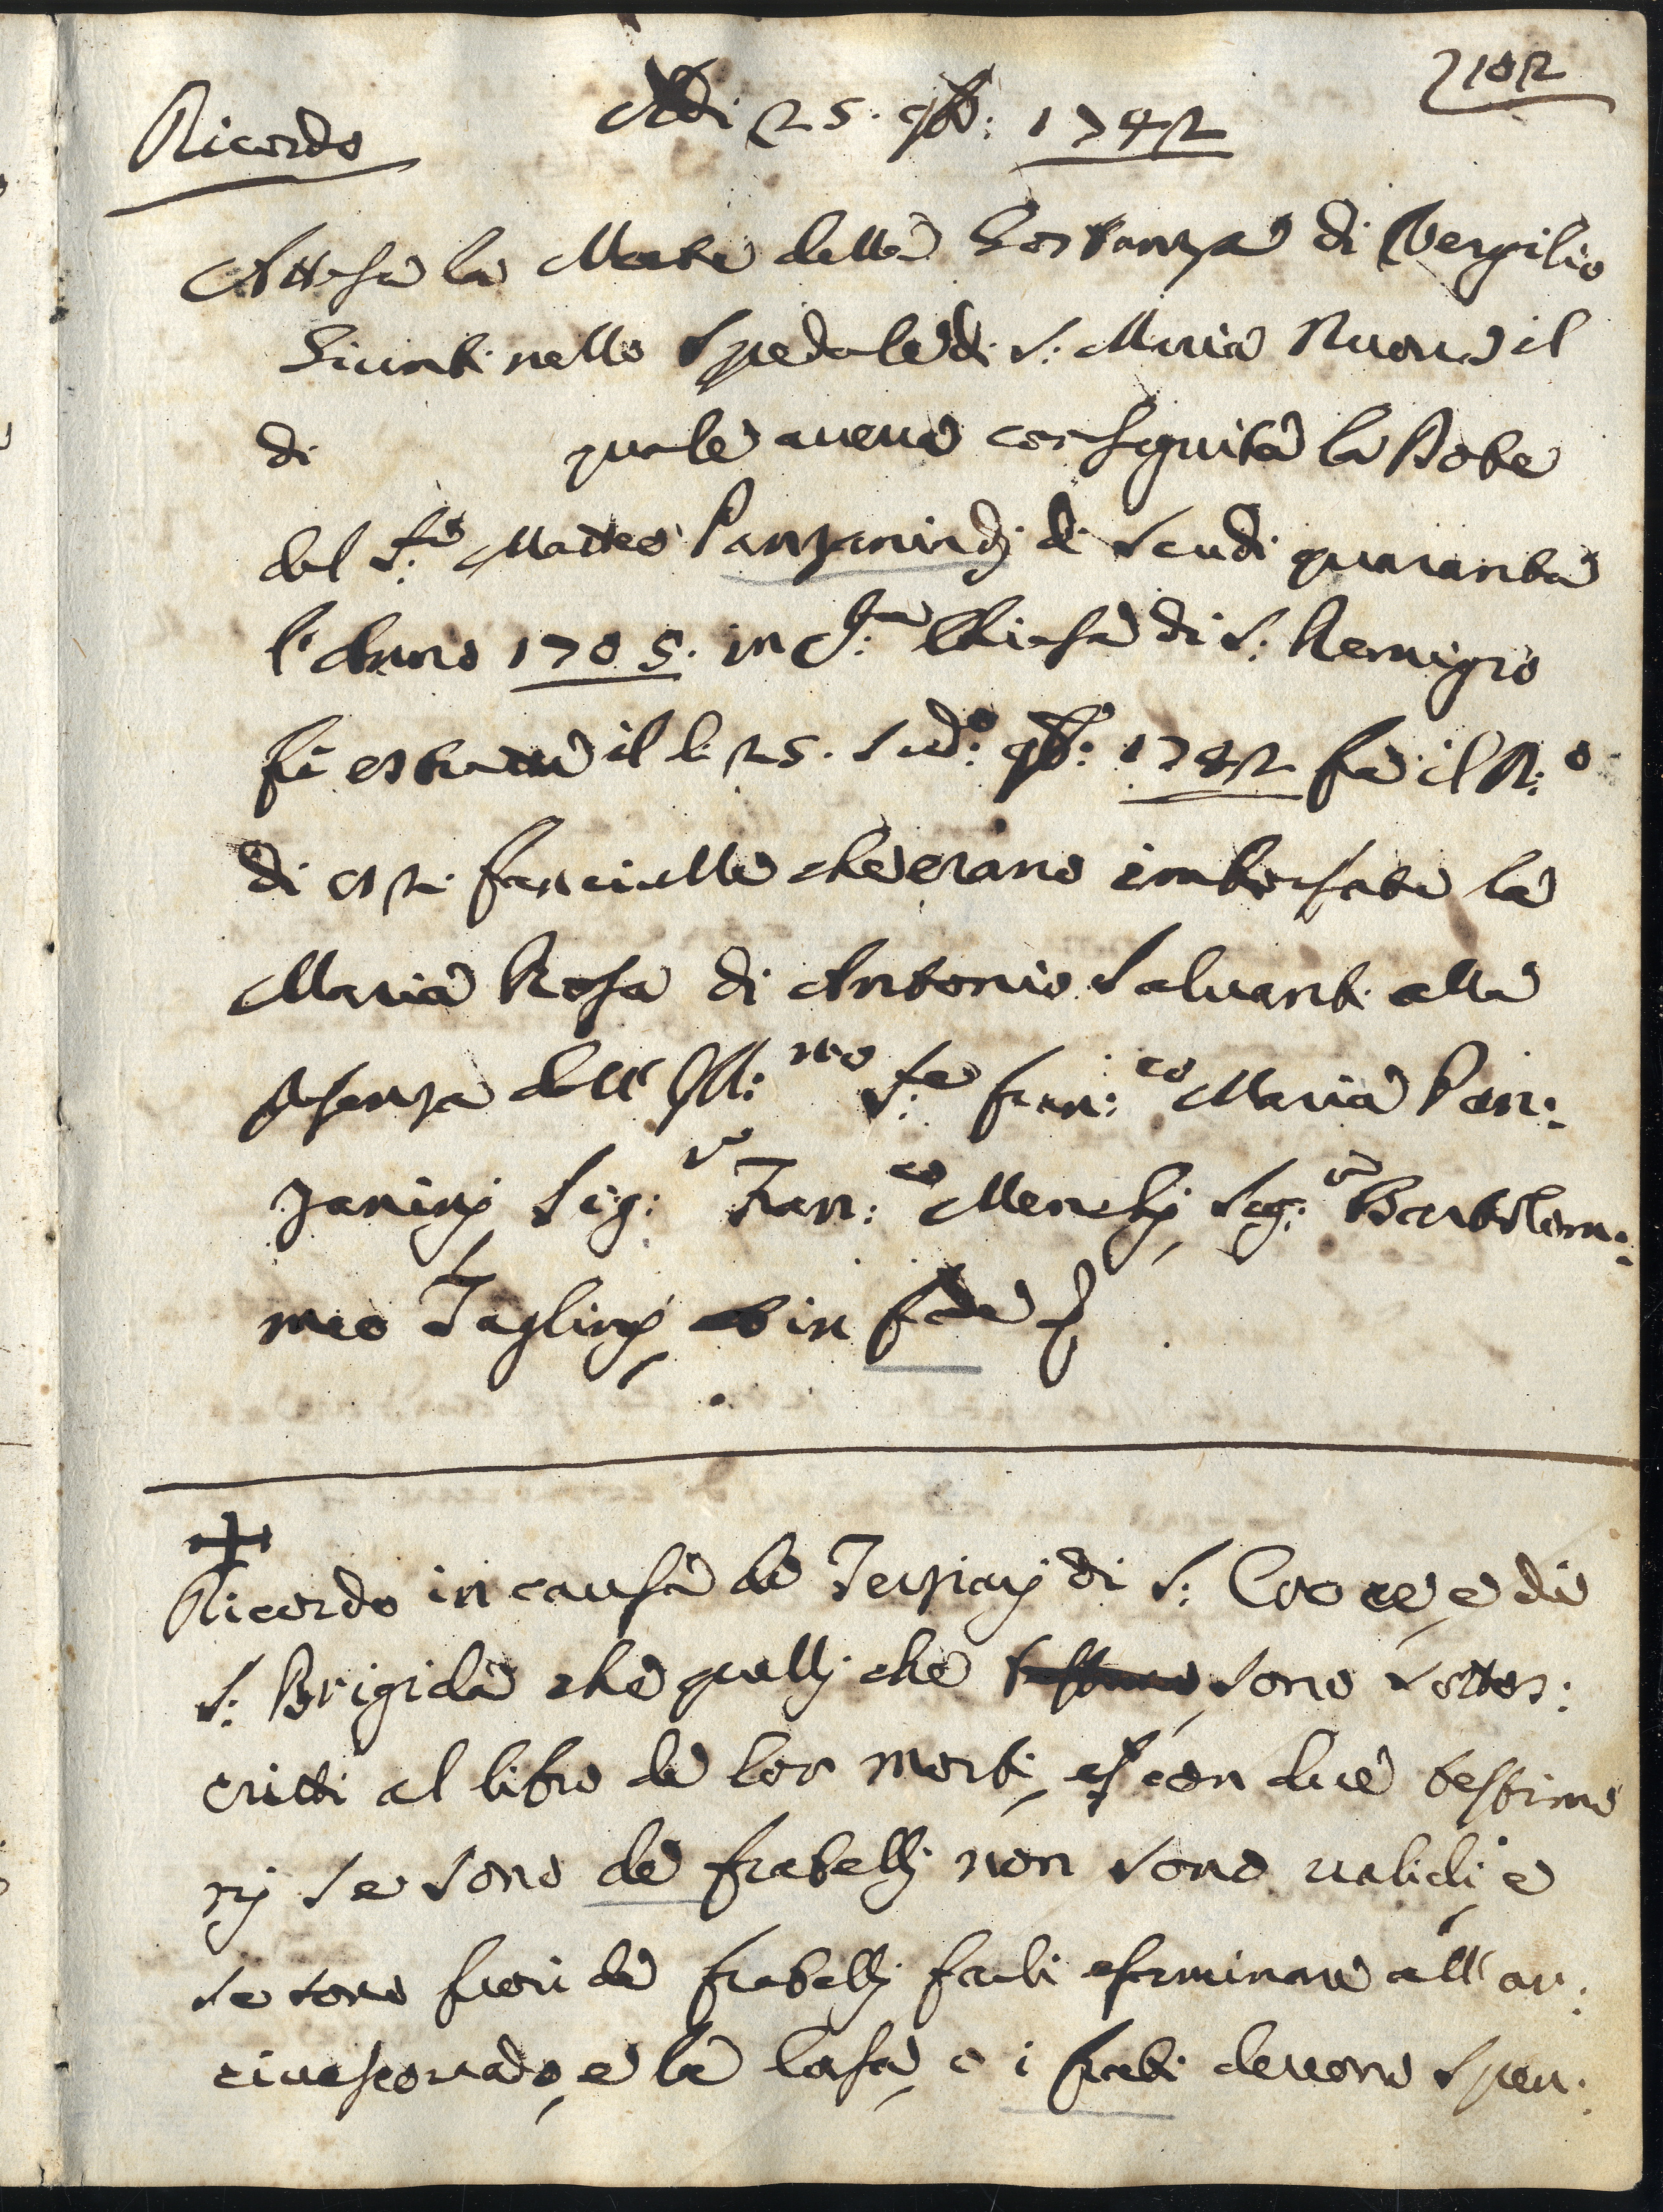 102
Ricordo
Adi 25. 9b: 1742
Attesa la Morte della Gostanza di Vergilio
Giunti nello Spedale di S: Maria Nuova il
di quale aveva conseguita la Dote
del S:re Matteo Panzanindj di Scudi quaranta
l'Anno 1705. in q:ta Chiesa di S: Remigio
fù estratta il dì 25. Sud:o 9b: 1742 fra il N:o
di fanciulle che erano imborsate la
Maria Rosa di Antonio Salvanti alla
presenza dell' Ill:mo S:re Fran:co Maria Pan:
zaninj Sig:re Fran:co Menchj Sig:re Bartolom:
meo Taglinj in fede
Ricordo in causa de Terziarj di S: Croce, e di
S: Brigida che quellj che sono sottos:
critti al libro de lor mortj, con due testimo
nj se sono de fratellj non sono validj, e
se sono fuori de fratellj farli esaminare all'ar:
civescovado, e la Casa, o i frati devono spen: